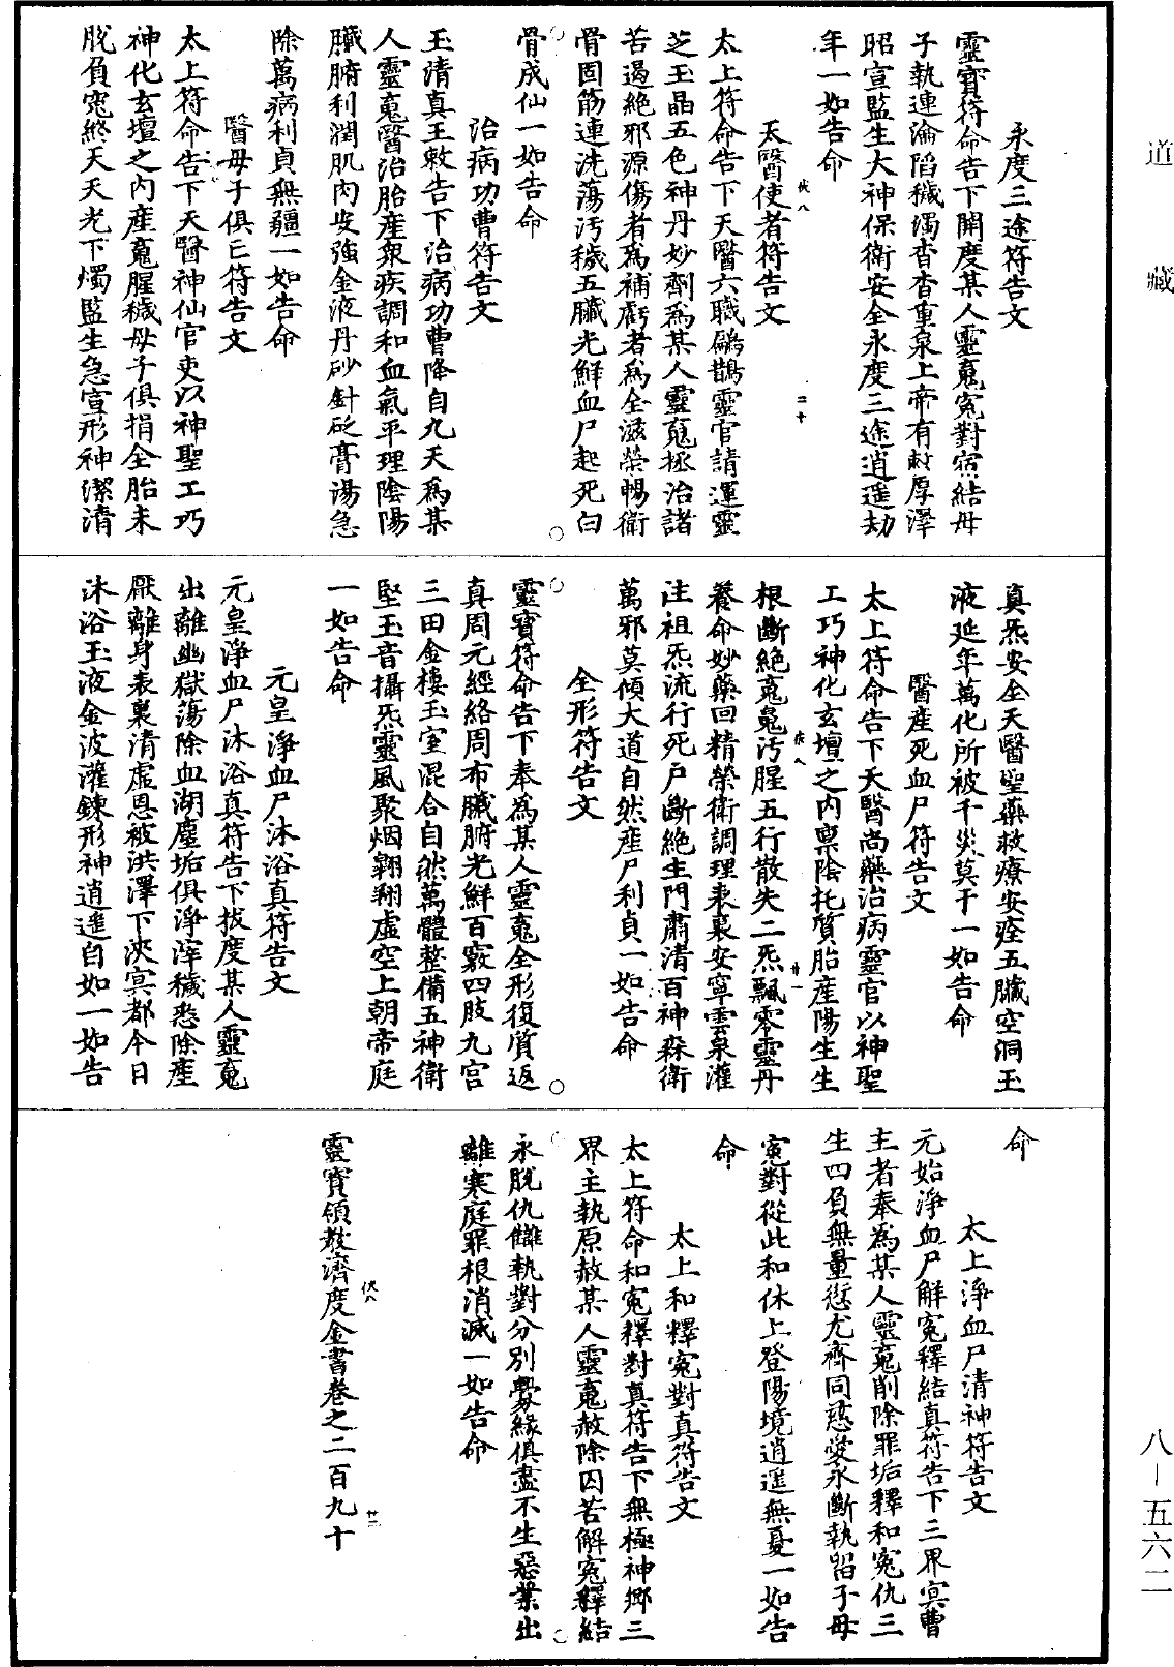 道藏
永度三途符告文
靈寶符命告下開度某人靈䰟寃對宿結母
子執連淪䧟穢濁杳杳重泉上帝有敕厚澤
昭宣監生大神保衛安全永度三途逍遥劫
年一如告命
天醫使者符告文
太上符命告下天醫六職鶣鵲靈官請運靈
芝玉晶五色神丹妙劑爲某人靈䰟拯治諸
苦遏絶邪源傷者爲補虧者爲全滋榮暢衛
骨固筋連洗蕩汚穢五臟光鮮血尸起死白
骨成仙一如告命
治病功曹符告文
玉清真王敕告下治病功曹降自九天爲某
人靈䰟醫治胎產衆疾調和血氣平理陰陽
臟腑利潤肌肉安強金液丹砂針砭膏湯急
除萬病利貞無疆一如告命
醫母子俱亡符告文
太上符命告下天醫神仙官吏以神聖工巧
神化玄壇之内産䰟腥穢母子俱捐全胎未
脱負寃終天天光下燭監生急宣形神潔清
真炁安全天醫聖藥救療安痊五臟空洞玉
液延年萬化所被千災莫干一如告命
醫産死血尸符告文
太上符命告下天醫尚藥治病靈官以神聖
工巧神化玄壇之内禀陰托質胎産陽生生
根斷絶䰟鬽汚腥五行散失二炁飄零靈丹
養命妙藥回精榮衛調理表裏安寧雲泉灌
注祖炁流行死戸斷絶生門肅清百神森衛
萬邪莫傾大道自然産尸利貞一如告命
全形符告文
靈寶符命告下奉爲某人靈䰟全形復質返
真周元經絡周布臟腑光鮮百竅四肢九宫
三田金樓玉室混合自然萬體整備五神衛
堅玉音攝炁靈風聚烟翱翔虚空上朝帝庭
一如告命
元皇淨血尸沐浴真符告文
元皇淨血尸沐浴真符告下拔度某人靈䰟
出離幽獄蕩除血湖塵垢俱淨滓穢悉除産
厭離身表裏清虚恩被洪澤下浹冥都今日
沐浴玉液金波灌錬形神逍遥自如一如告
命
太上淨血尸清神符告文
元始淨血尸解寃釋結真符告下三界冥曹
主者奉爲某人靈䰟削除罪垢釋和寃仇三
生四負無量愆尤齊同慈愛永斷執留子母
寃對從此和休上登陽境逍遥無憂一如告
命
太上和釋寃對真符告文
太上符命和寃釋對真符告下無極神鄉三
界主執原赦某人靈䰟赦除囚苦解寃釋結
永脱仇讎執對分别㸑緣俱盡不生惡業出
離寒庭罪根消滅一如告命
靈寶領教濟度金書卷之二百九十
八－五六二